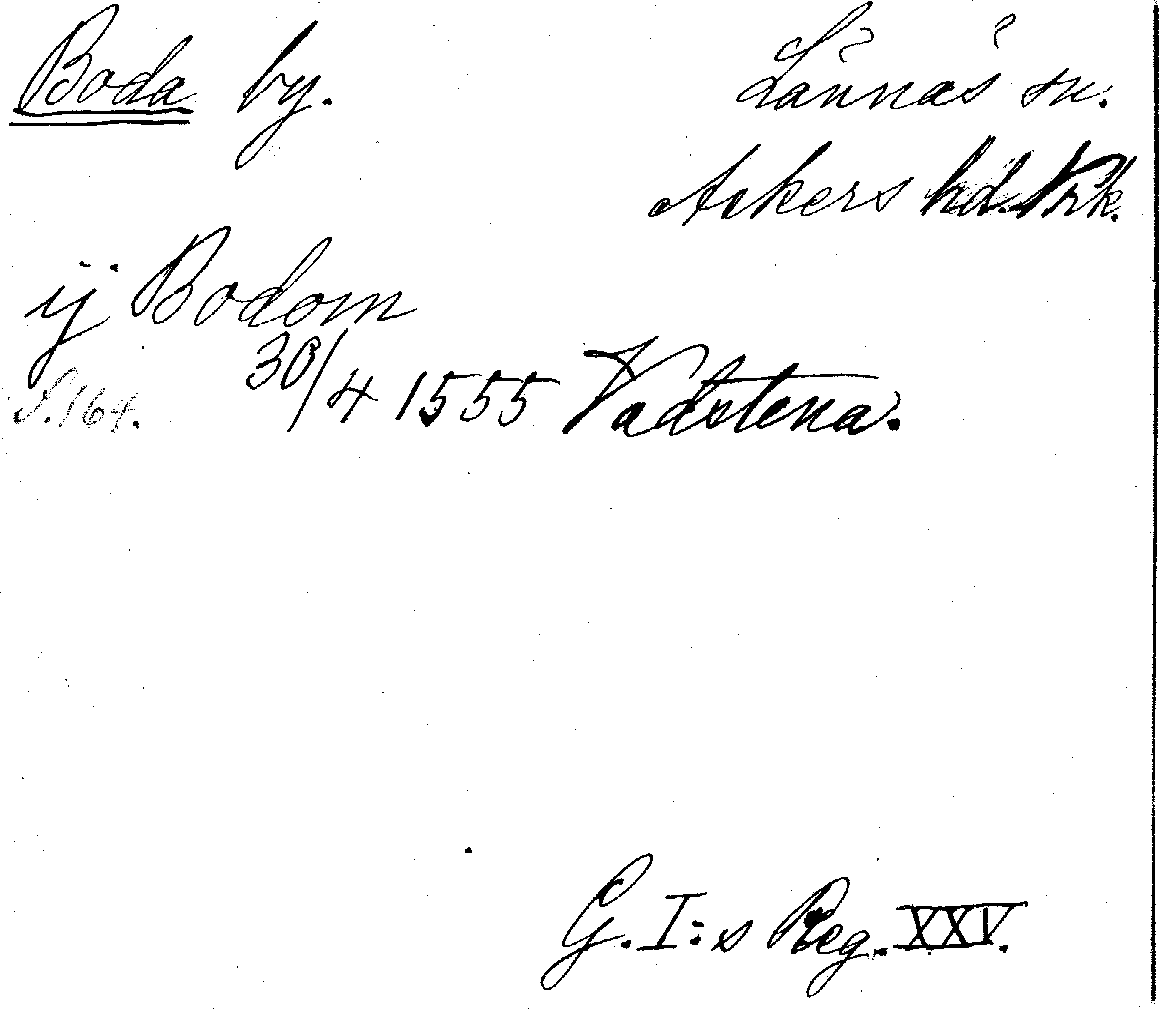 Boda by. Lännäs sn.
Åkers hd.
ij Bodom
S. 164. 30/4 1555 Vadstena.
G. I:s Reg. XXV.